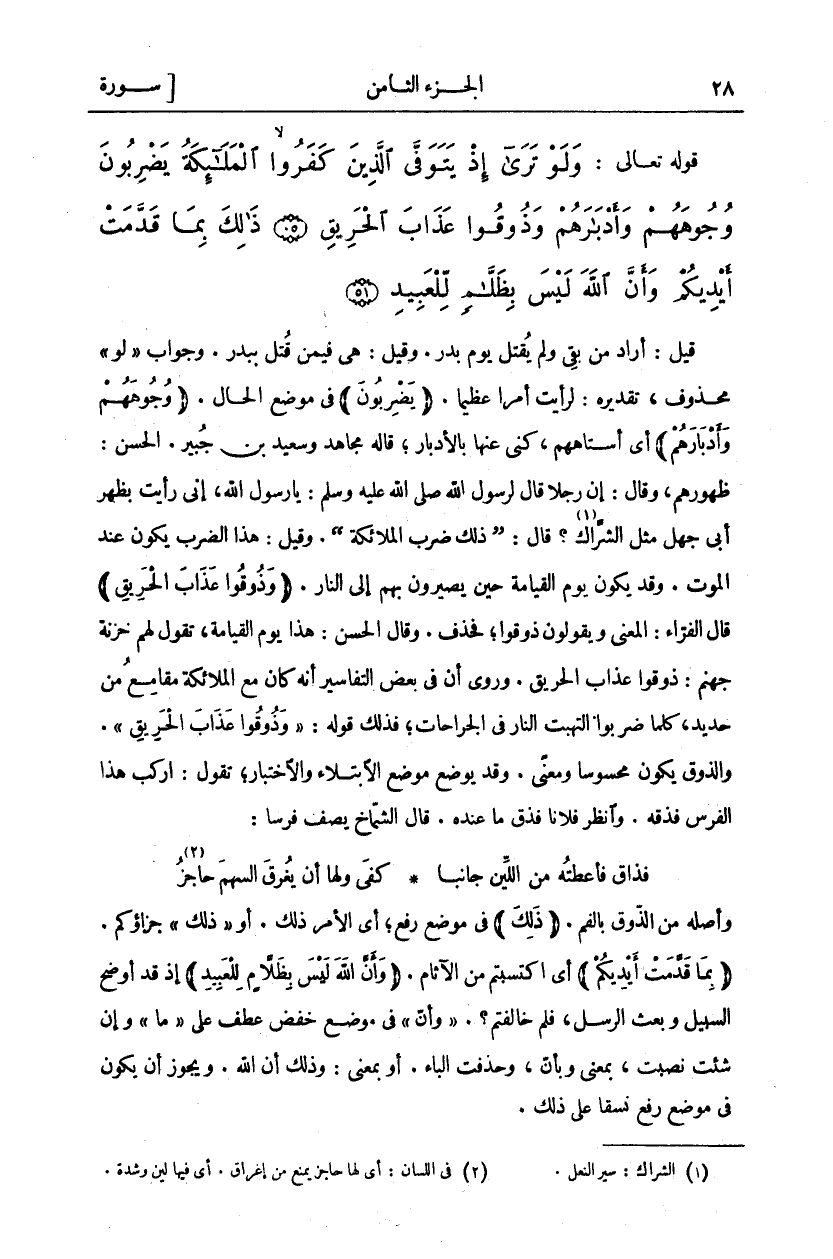 ٢٨ الجزء الثامن [ سورة
قوله تعالى : وَلَوْ تَرَىٰٓ إِذْ يَتَوَفَّى ٱلَّذِينَ كَفَرُواْ ۙ ٱلْمَلَـٰٓئِكَةُ يَضْرِبُونَ
وُجُوهَهُمْ وَأَدْبَـٰرَهُمْ وَذُوقُوا عَذَابَ ٱلْحَرِيقِ ۝٥٠ ذَٰلِكَ بِمَا قَدَّمَتْ
أَيْدِيكُمْ وَأَنَّ ٱللَّهَ لَيْسَ بِظَلَّـٰمٍ لِّلْعَبِيدِ ۝٥١
قيل : أراد من بقى ولم يُقتل يوم بدر . وقيل : هى فيمن قُتل ببدر . وجواب « لو »
محذوف ، تقديره : لرأيت أمرا عظيما . ﴿ يَضْرِبُونَ ﴾ فى موضع الحال . ﴿ وُجُوهَهُمْ
وَأَدْبَارَهُمْ ﴾ أى أستاههم ، كنى عنها بالأدبار ؛ قاله مجاهد وسعيد بن جُبير . الحسن :
ظهورهم ، وقال : إن رجلا قال لرسول الله صلى الله عليه وسلم : يارسول الله ، إنى رأيت بظهر
أبى جهل مثل الشِّراك (١) ؟ قال : ” ذلك ضرب الملائكة “ . وقيل : هذا الضرب يكون عند
الموت . وقد يكون يوم القيامة حين يصيرون بهم إلى النار . ﴿ وَذُوقُوا عَذَابَ الْحَرِيقِ ﴾
قال الفرّاء : المعنى ويقولون ذوقوا ؛ فحذف . وقال الحسن : هذا يوم القيامة ، تقول لهم خزنة
جهنم : ذوقوا عذاب الحريق . وروى أن فى بعض التفاسير أنه كان مع الملائكة مقامعُ من
حديد ، كلما ضربوا التهبت النار فى الجراحات ؛ فذلك قوله : « وَذُوقُوا عَذَابَ الْحَرِيقِ » .
والذوق يكون محسوسا ومعنًى . وقد يوضع موضع الاٌبتلاء والاٌختبار ؛ تقول : اركب هذا
الفرس فذقه . وٱنظر فلانا فذق ما عنده . قال الشمّاخ يصف فرسا :
فذاق فأعطتْه من اللِّين جانبا * كفَى ولها أن يُغرق السهمَ حاجزُ (٢)
وأصله من الذّوق بالفم . ﴿ ذَلِكَ ﴾ فى موضع رفع ؛ أى الأمر ذلك . أو « ذلك » جزاؤكم .
﴿ بِمَا قَدَّمَتْ أَيْدِيكُمْ ﴾ أى اكتسبتم من الآثام . ﴿ وَأَنَّ اللَّهَ لَيْسَ بِظَلَّامٍ لِلْعَبِيدِ ﴾ إذ قد أوضح
السبيل وبعث الرسل ، فلم خالفتم ؟ . « وأنّ » فى موضع خفض عطف على « ما » وإن
شئت نصبت ، بمعنى وبأنّ ، وحذفت الباء . أو بمعنى : وذلك أن الله . ويجوز أن يكون
فى موضع رفع نسقا على ذلك .
(١) الشراك : سير النعل . (٢) فى اللسان : أى لها حاجز يمنع من إغراق . أى فيها لين وشدة .